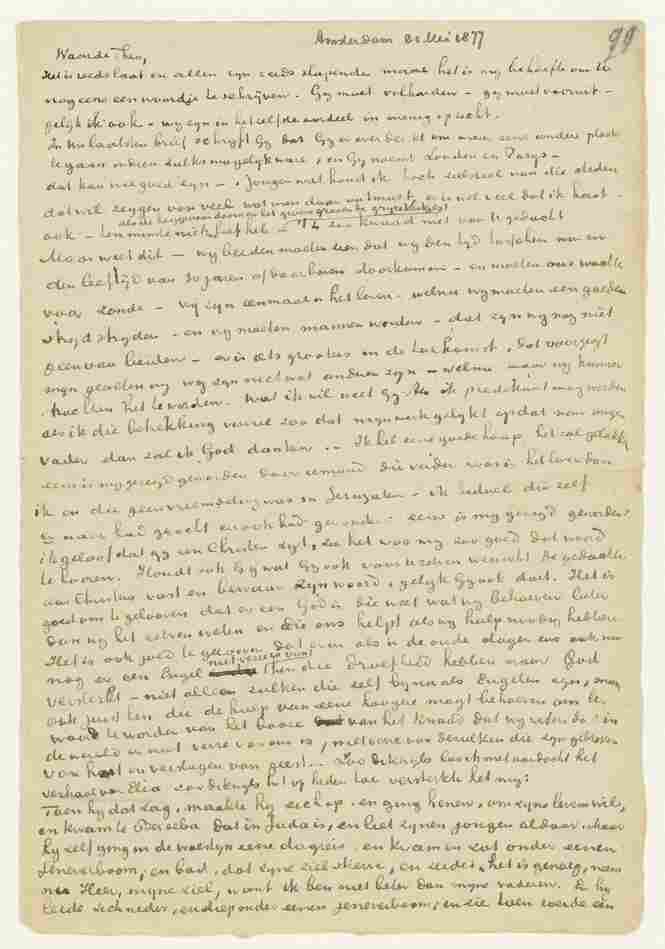 99
Amsterdam 31 Mei 1877
Waarde Theo,
Het is reeds laat en allen zyn reeds slapende maar het is my behoefte om U
nog eens een woordje te schrijven. Gy moet volharden – gy moet vooruit –
gelyk ik ook – wy zyn in hetzelfde oordeel in menig opzicht.
In Uw laatsten brief schryft Gy dat Gy er over denkt om naar eene andere plaats
te gaan indien zulks mogelyk ware, en Gy noemt London en Parys –
dat kan wel goed zyn – Jongen wat houd ik toch veel van die steden
dat wil zeggen van veel wat men daar
ook – ten minste niet lief heb –
Maar weet dit – wy beiden moeten zien dat wy den tyd tusschen nu en
den leeftyd van 30 jaren of daarboven doorkomen – en moeten ons wachten
voor zonde – wy zyn eenmaal in het leven – welnu wy moeten een goeden
strijd strijden – en wy moeten mannen worden – dat zyn wy nog niet
geen van beiden – er is iets grooters in de toekomst, dat voorzegt
mijn geweten my wy zyn niet wat anderen zyn – welnu maar wy kunnen
trachten het te worden. Wat ik wil weet Gy Als ik predikant mag worden
als ik die betrekking vervul zoo dat myn werk gelykt op dat van onzen
Vader dan zal ik God danken. – Ik heb eene goede hoop het zal gelukken
eens is my gezegd geworden door iemand die verder was in het leven dan
ik en die geen vreemdeling was in Jeruzalem – ik bedoel die zelf
er naar had gezocht en ook had gevonden – eens is my gezegd geworden:
ik geloof dat gy een Christen zyt, zie het was my zoo goed dat woord
te hooren. Houdt ook Gy wat Gy ook voor U ziet de gedachte
aan Christus vast en bewaar Zyn woord, gelyk Gy ook doet. Het is
goed om te gelooven dat er een God is die weet wat wy behoeven beter
dan wy het zelven weten en die ons helpt als wy hulp noodig hebben.
Het is ook goed te gelooven dat even als in de oude dagen zoo ook nu
nog er een Engel niet verre is van hen die droefheid hebben naar God
versterkt – niet alleen zulken die zelf byna als Engelen zyn, maar
ook juist hen die de hulp van eene hoogere magt behoeven om be-
waard te worden van het booze van het kwade dat wy weten dat in
de wereld en niet verre van ons is, met eene van de zulken die zyn gebroken
van hart en verslagen van geest. – Zoo dikwyls las ik met aandacht het
verhaal van Elia zoo dikwyls tot op heden toe versterkte het my:
Toen hy dat zag, maakte hy zich op, en ging henen, om zyns levens wil,
en kwam te Berseba dat in Juda is, en liet zynen jongen aldaar. Maar
hy zelf ging in de woestyn eene dagreis, en kwam en zat onder eenen
Jeneverboom, en bad, dat zyne ziel sterve, en zeide: het is genoeg, neem
nu Heer, myne ziel, want ik ben niet beter dan myne vaderen. En hy
leide zich neder, en sliep onder eenen jeneverboom, en zie toen roerde een